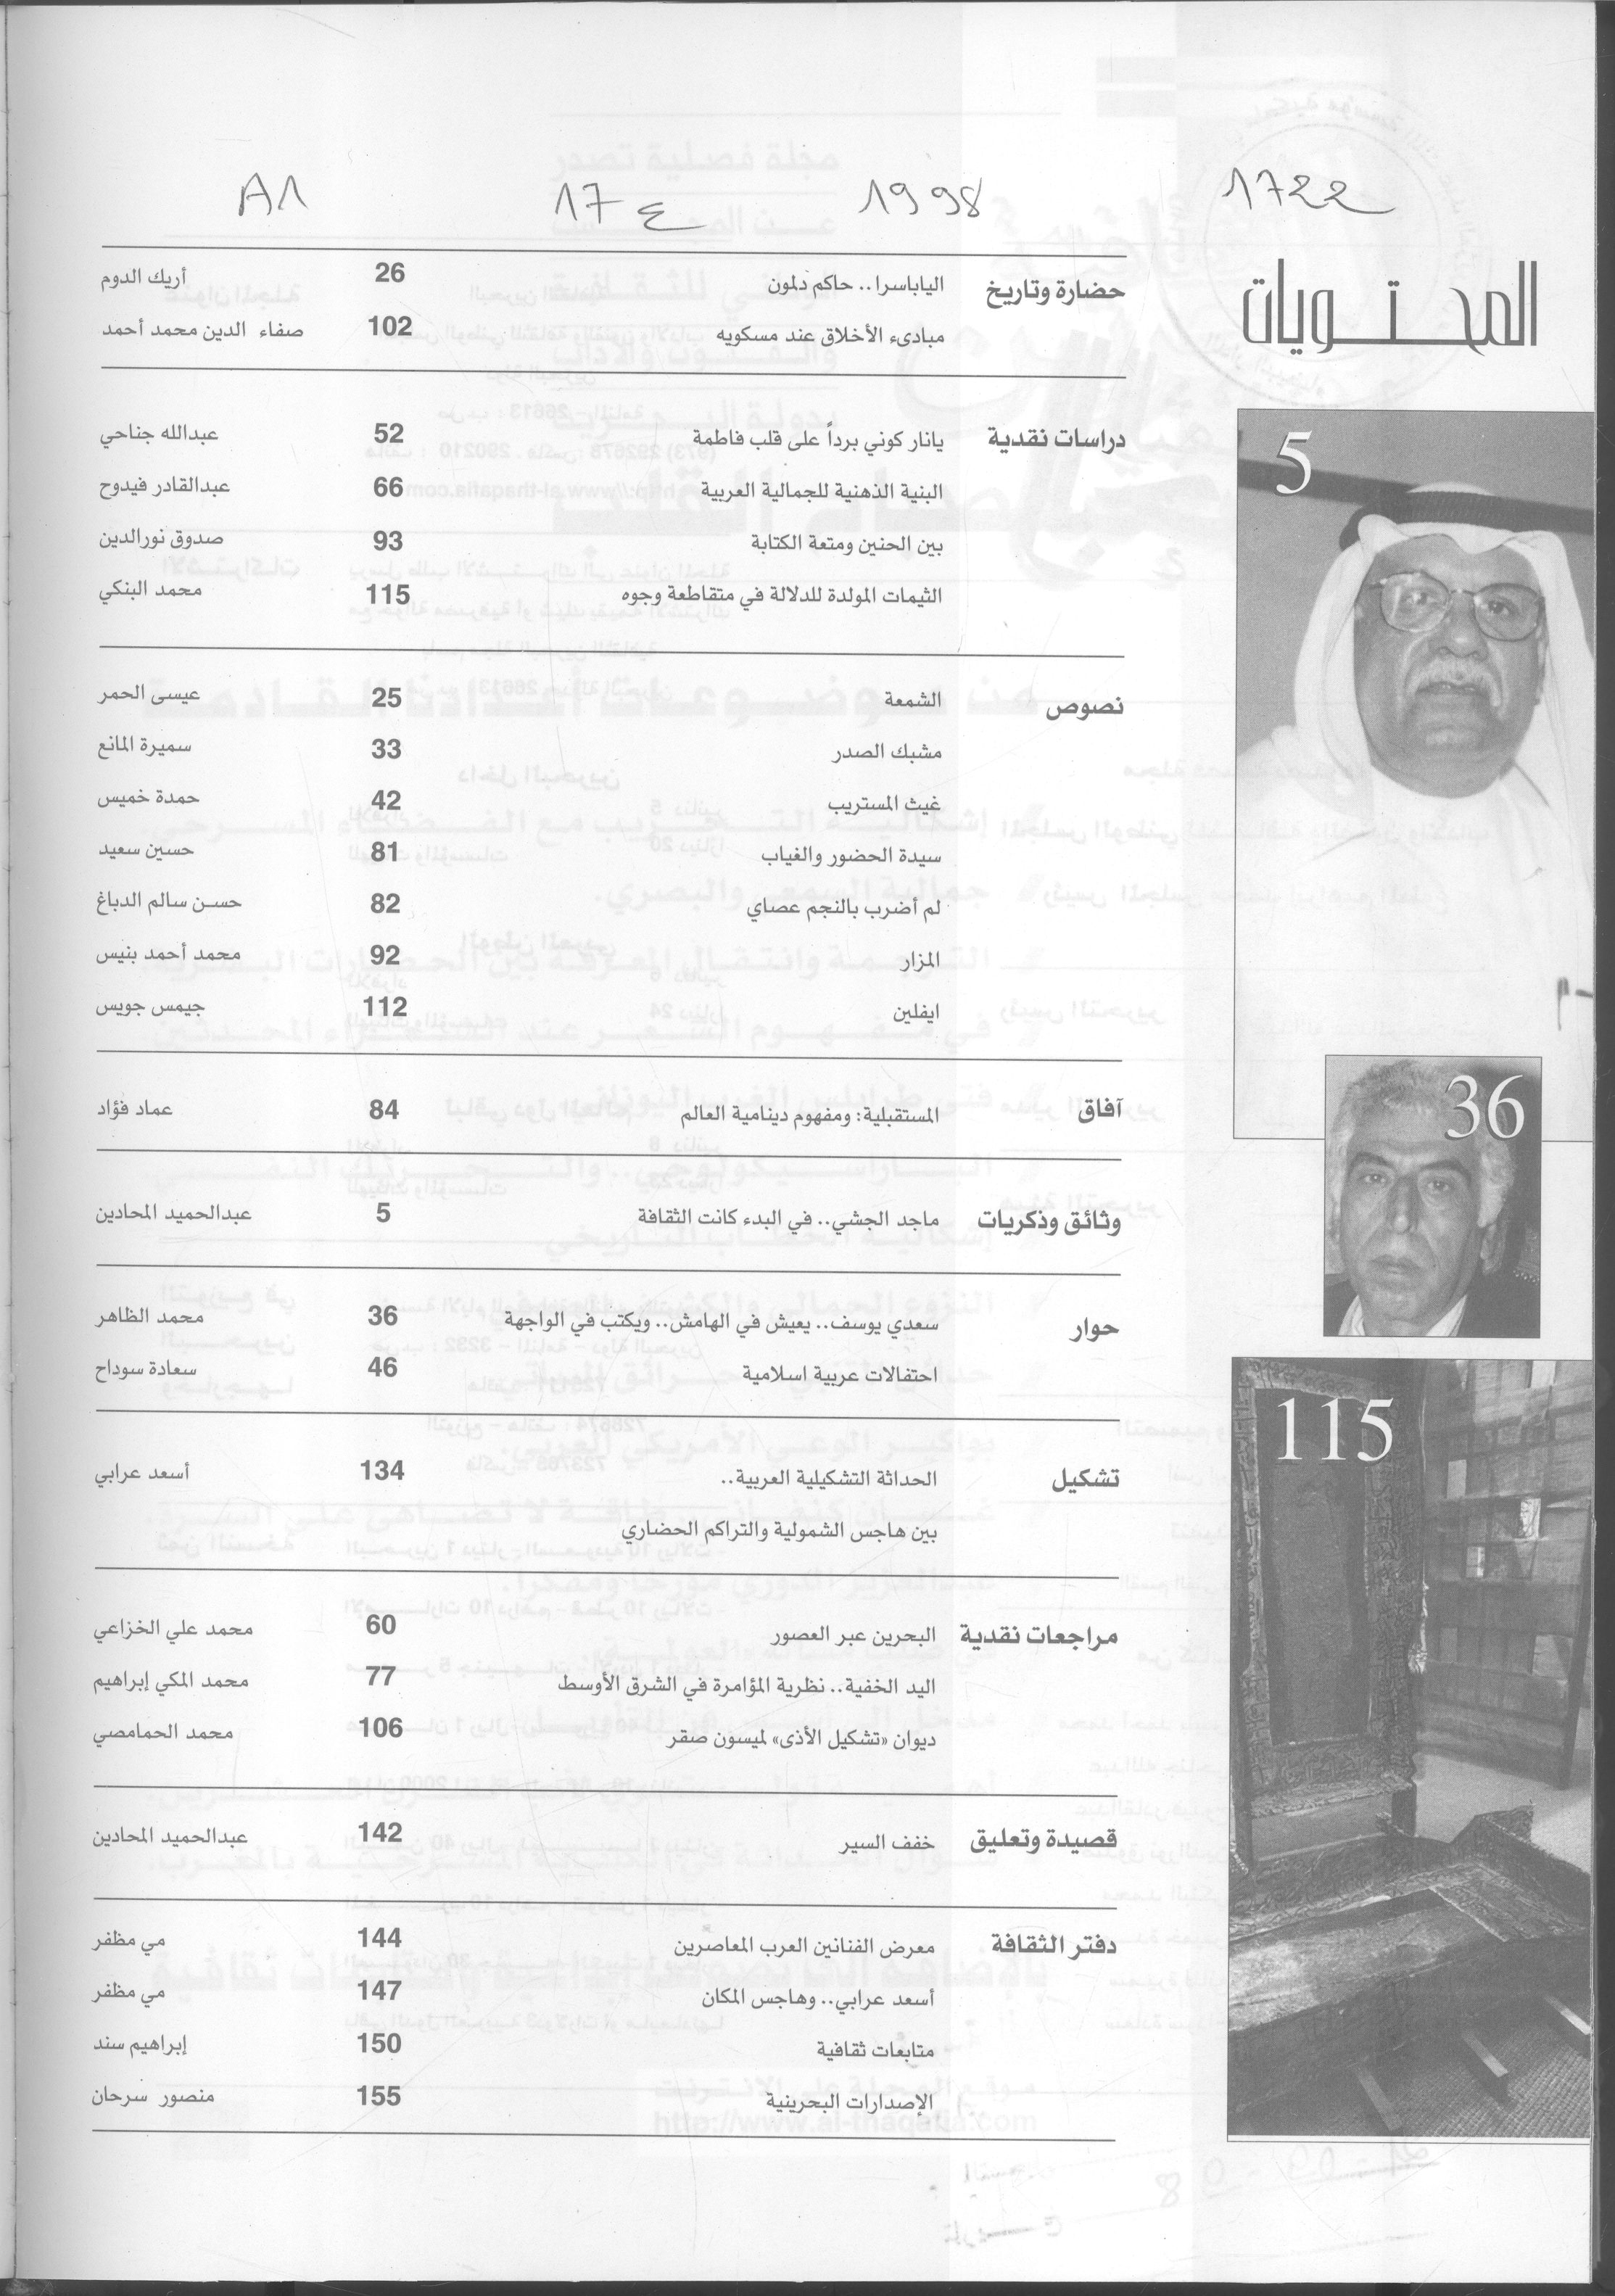 1722 1998 ع 17 A1
المحتويات
حضارة وتاريخ الياباسرا.. حاكم دلمون 26 أريك الدوم
مبادىء الأخلاق عند مسكويه 102 صفاء الدين محمد أحمد
دراسات نقدية يانار كوني برداً على قلب فاطمة 52 عبدالله جناحي
البنية الذهنية للجمالية العربية 66 عبدالقادر فيدوح
بين الحنين ومتعة الكتابة 93 صدوق نورالدين
الثيمات المولدة للدلالة في متقاطعة وجوه 115 محمد البنكي
نصوص الشمعة 25 عيسى الحمر
مشبك الصدر 33 سميرة المانع
غيث المستريب 42 حمدة خميس
سيدة الحضور والغياب 81 حسين سعيد
لم أضرب بالنجم عصاي 82 حسن سالم الدباغ
المزار 92 محمد أحمد بنيس
ايفلين 112 جيمس جويس
آفاق المستقبلية: ومفهوم دينامية العالم 84 عماد فؤاد
وثائق وذكريات ماجد الجشي.. في البدء كانت الثقافة 5 عبدالحميد المحادين
حوار سعدي يوسف.. يعيش في الهامش.. ويكتب في الواجهة 36 محمد الظاهر
احتفالات عربية اسلامية 46 سعادة سوداح
تشكيل الحداثة التشكيلية العربية.. 134 أسعد عرابي
بين هاجس الشمولية والتراكم الحضاري
مراجعات نقدية البحرين عبر العصور 60 محمد علي الخزاعي
اليد الخفية.. نظرية المؤامرة في الشرق الأوسط 77 محمد المكي إبراهيم
ديوان «تشكيل الأذى» لميسون صقر 106 محمد الحمامصي
قصيدة وتعليق خفف السير 142 عبدالحميد المحادين
دفتر الثقافة معرض الفنانين العرب المعاصرين 144 مي مظفر
أسعد عرابي.. وهاجس المكان 147 مي مظفر
متابعات ثقافية 150 إبراهيم سند
الإصدارات البحرينية 155 منصور سرحان
5
36
115